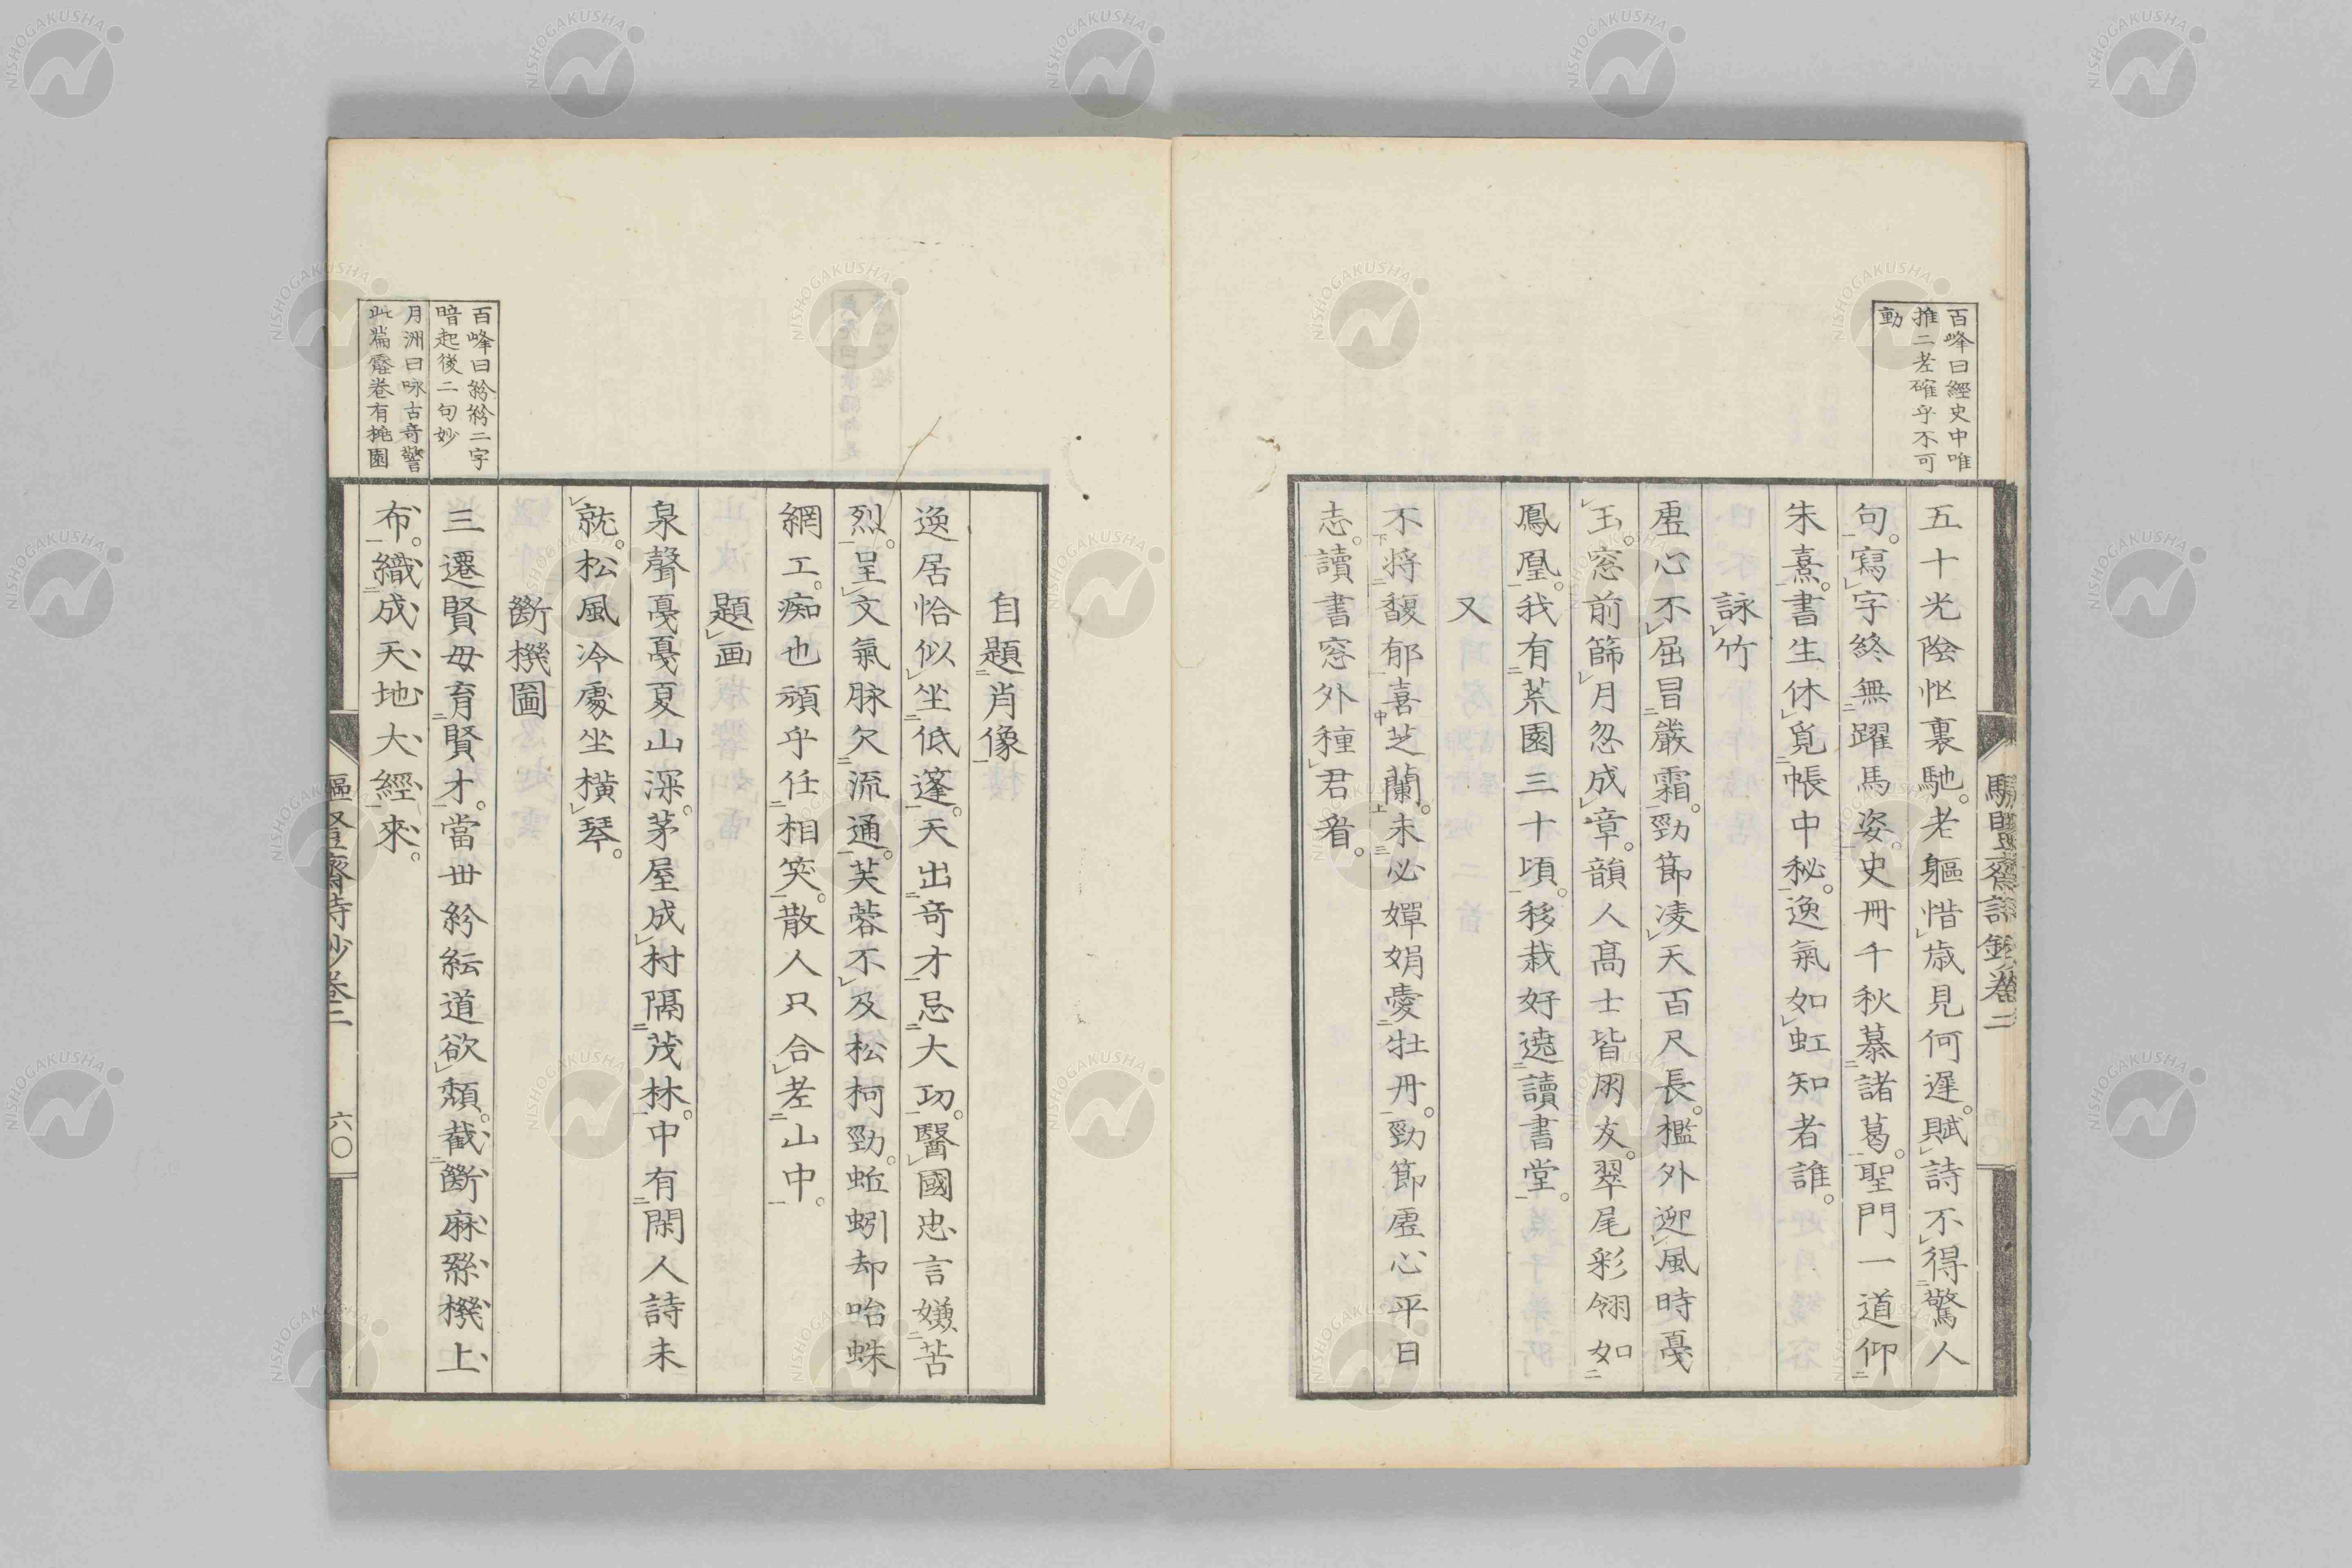 百峰曰經史中唯
推二老確乎不可
動
五十光陰忙裏馳。老軀惜歳見何遲。賦詩不得驚人
句。寫字終無躍馬姿。史冊千秋慕諸葛。聖門一道仰
朱熹。書生休覓帳中秘。逸氣如虹知者誰。
詠竹
虛心不屈冒嚴霜。勁節凌天百尺長。檻外迎風時戞
玉。窓前篩月忽成章。韻人高士皆朋友。翠尾彩翎如
鳳凰。我有荒園三十頃。移栽好遶讀書堂。
又
不將馥郁喜芝蘭。未必嬋娟愛牡丹。勁節虛心平日
志。讀書窓外種君看。
齋詩鈔卷二
自題肖像
逸居恰似坐低篷。天出奇才忌大功。醫國忠言嫌苦
烈。呈文氣脉欠流通。芙蓉不及松柯勁。蚯蚓却咍蛛
網工。痴也頑乎任相笑。散人只合老山中。
題画
泉聲戞戞夏山深。茅屋成村隔茂林。中有閑人詩未
就。松風冷處坐橫琴。
百峰曰紛紛二字
暗起後二句妙
月洲曰咏古奇警
此篇壓卷有桃園
斷機圖
三遷賢母育賢才。當世紛紜道欲頹。截斷麻絲機上
布。織成天地大經來。
齋詩鈔卷二
六〇
NISHOGAKUSHA